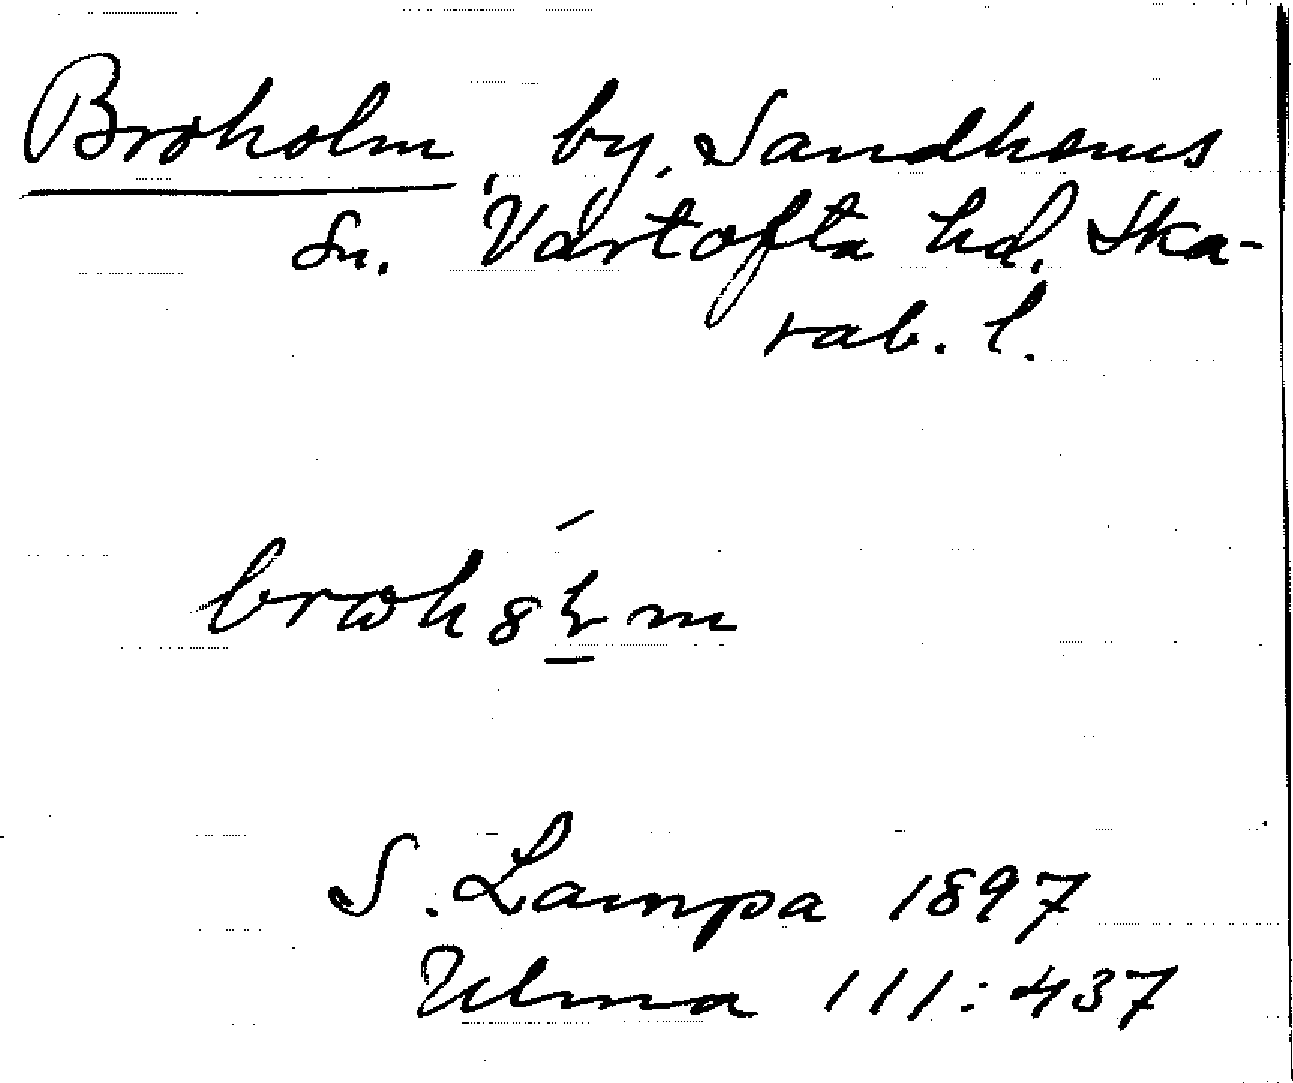 Broholm, by, Sandhems
Sn. Vartofta hd, Ska-
rab. l.
S. Lampa 1897
Ulma 111:437